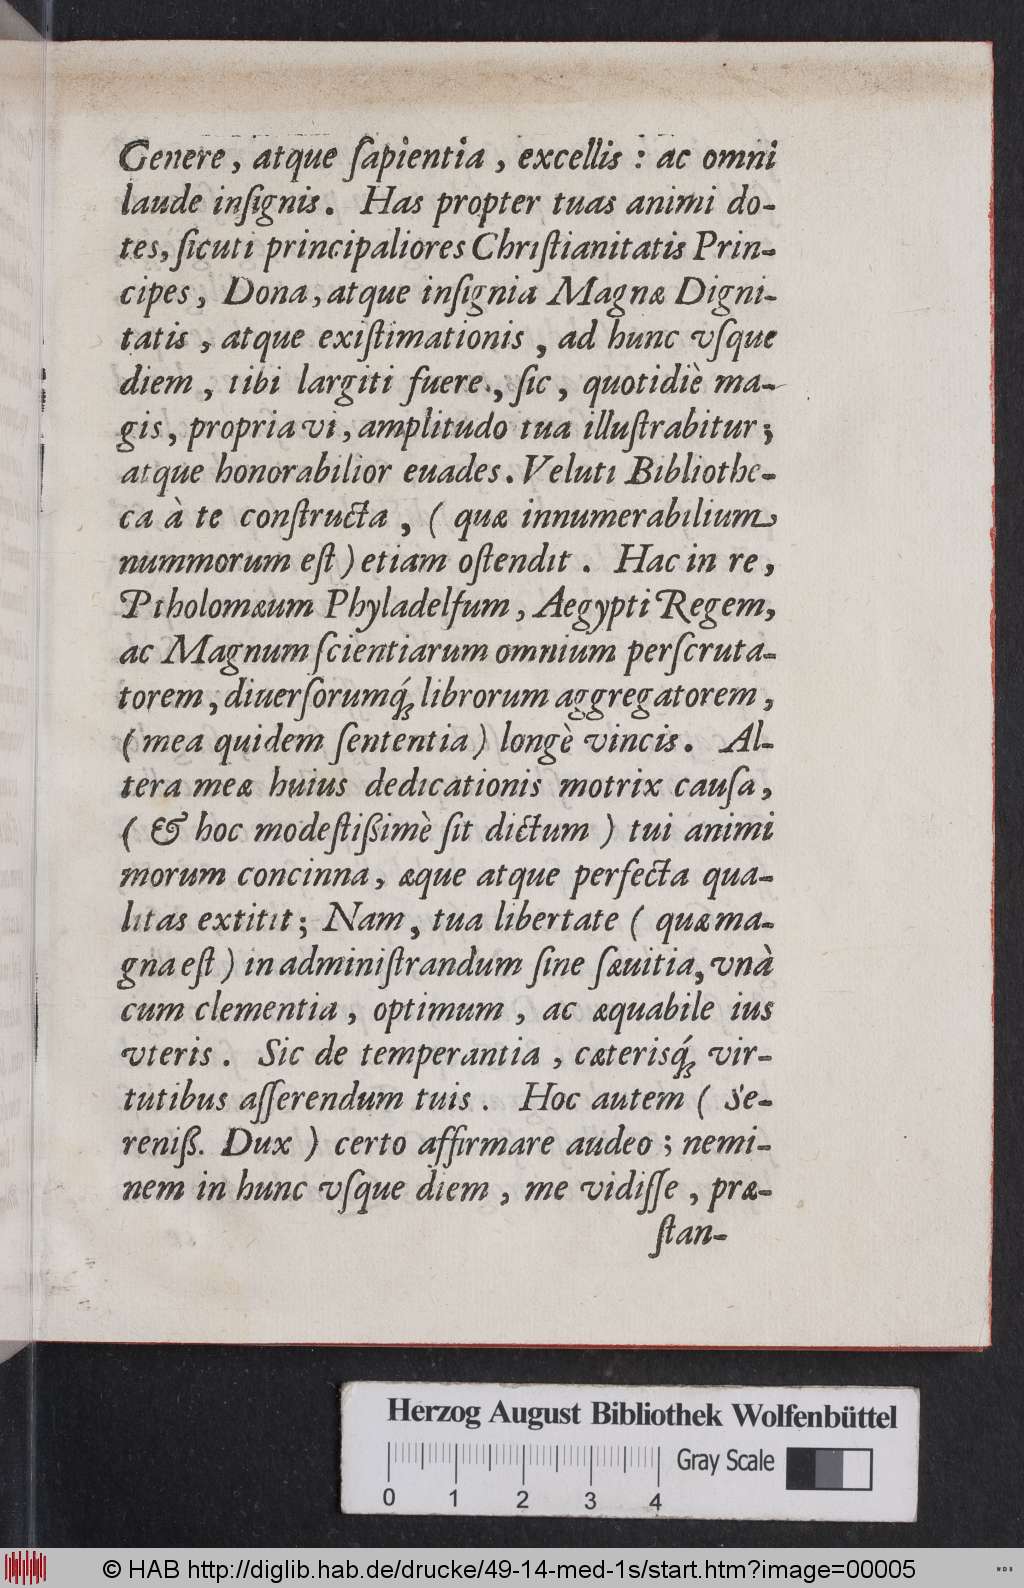 Genere, atque ſapientia, excellis : ac omni
laude inſignis. Has propter tuas animi do-
tes, ſicuti principaliores Chriſtianitatis Prin-
cipes, Dona, atque inſignia Magnæ Digni-
tatis, atque exiſtimationis, ad hunc vſque
diem, tibi largiti fuere., ſic, quotidiè ma-
gis, propria vi, amplitudo tua illuſtrabitur;
atque honorabilior euades. Veluti Bibliothe-
ca à te conſtructa, ( quæ innumerabilium
nummorum eſt ) etiam oſtendit. Hac in re,
Ptholomæum Phyladelfum, Aegypti Regem,
ac Magnum ſcientiarum omnium perſcruta-
torem, diuerſorumq́ꝫ librorum aggregatorem,
( mea quidem ſententia ) longè vincis. Al-
tera meæ huius dedicationis motrix cauſa,
( & hoc modeſtißimè ſit dictum ) tui animi
morum concinna, æque atque perfecta qua-
litas extitit; Nam, tua libertate ( quæ ma-
gna eſt ) in adminiſtrandum ſine ſæuitia, vnà
cum clementia, optimum, ac æquabile ius
vteris. Sic de temperantia, cæterisq́ꝫ vir-
tutibus aſſerendum tuis. Hoc autem ( Se-
reniß. Dux ) certo affirmare audeo; nemi-
nem in hunc vſque diem, me vidiſſe, præ-
ſtan-
Herzog August Bibliothek Wolfenbüttel
Gray Scale
0 1 2 3 4
© HAB http://diglib.hab.de/drucke/49-14-med-1s/start.htm?image=00005